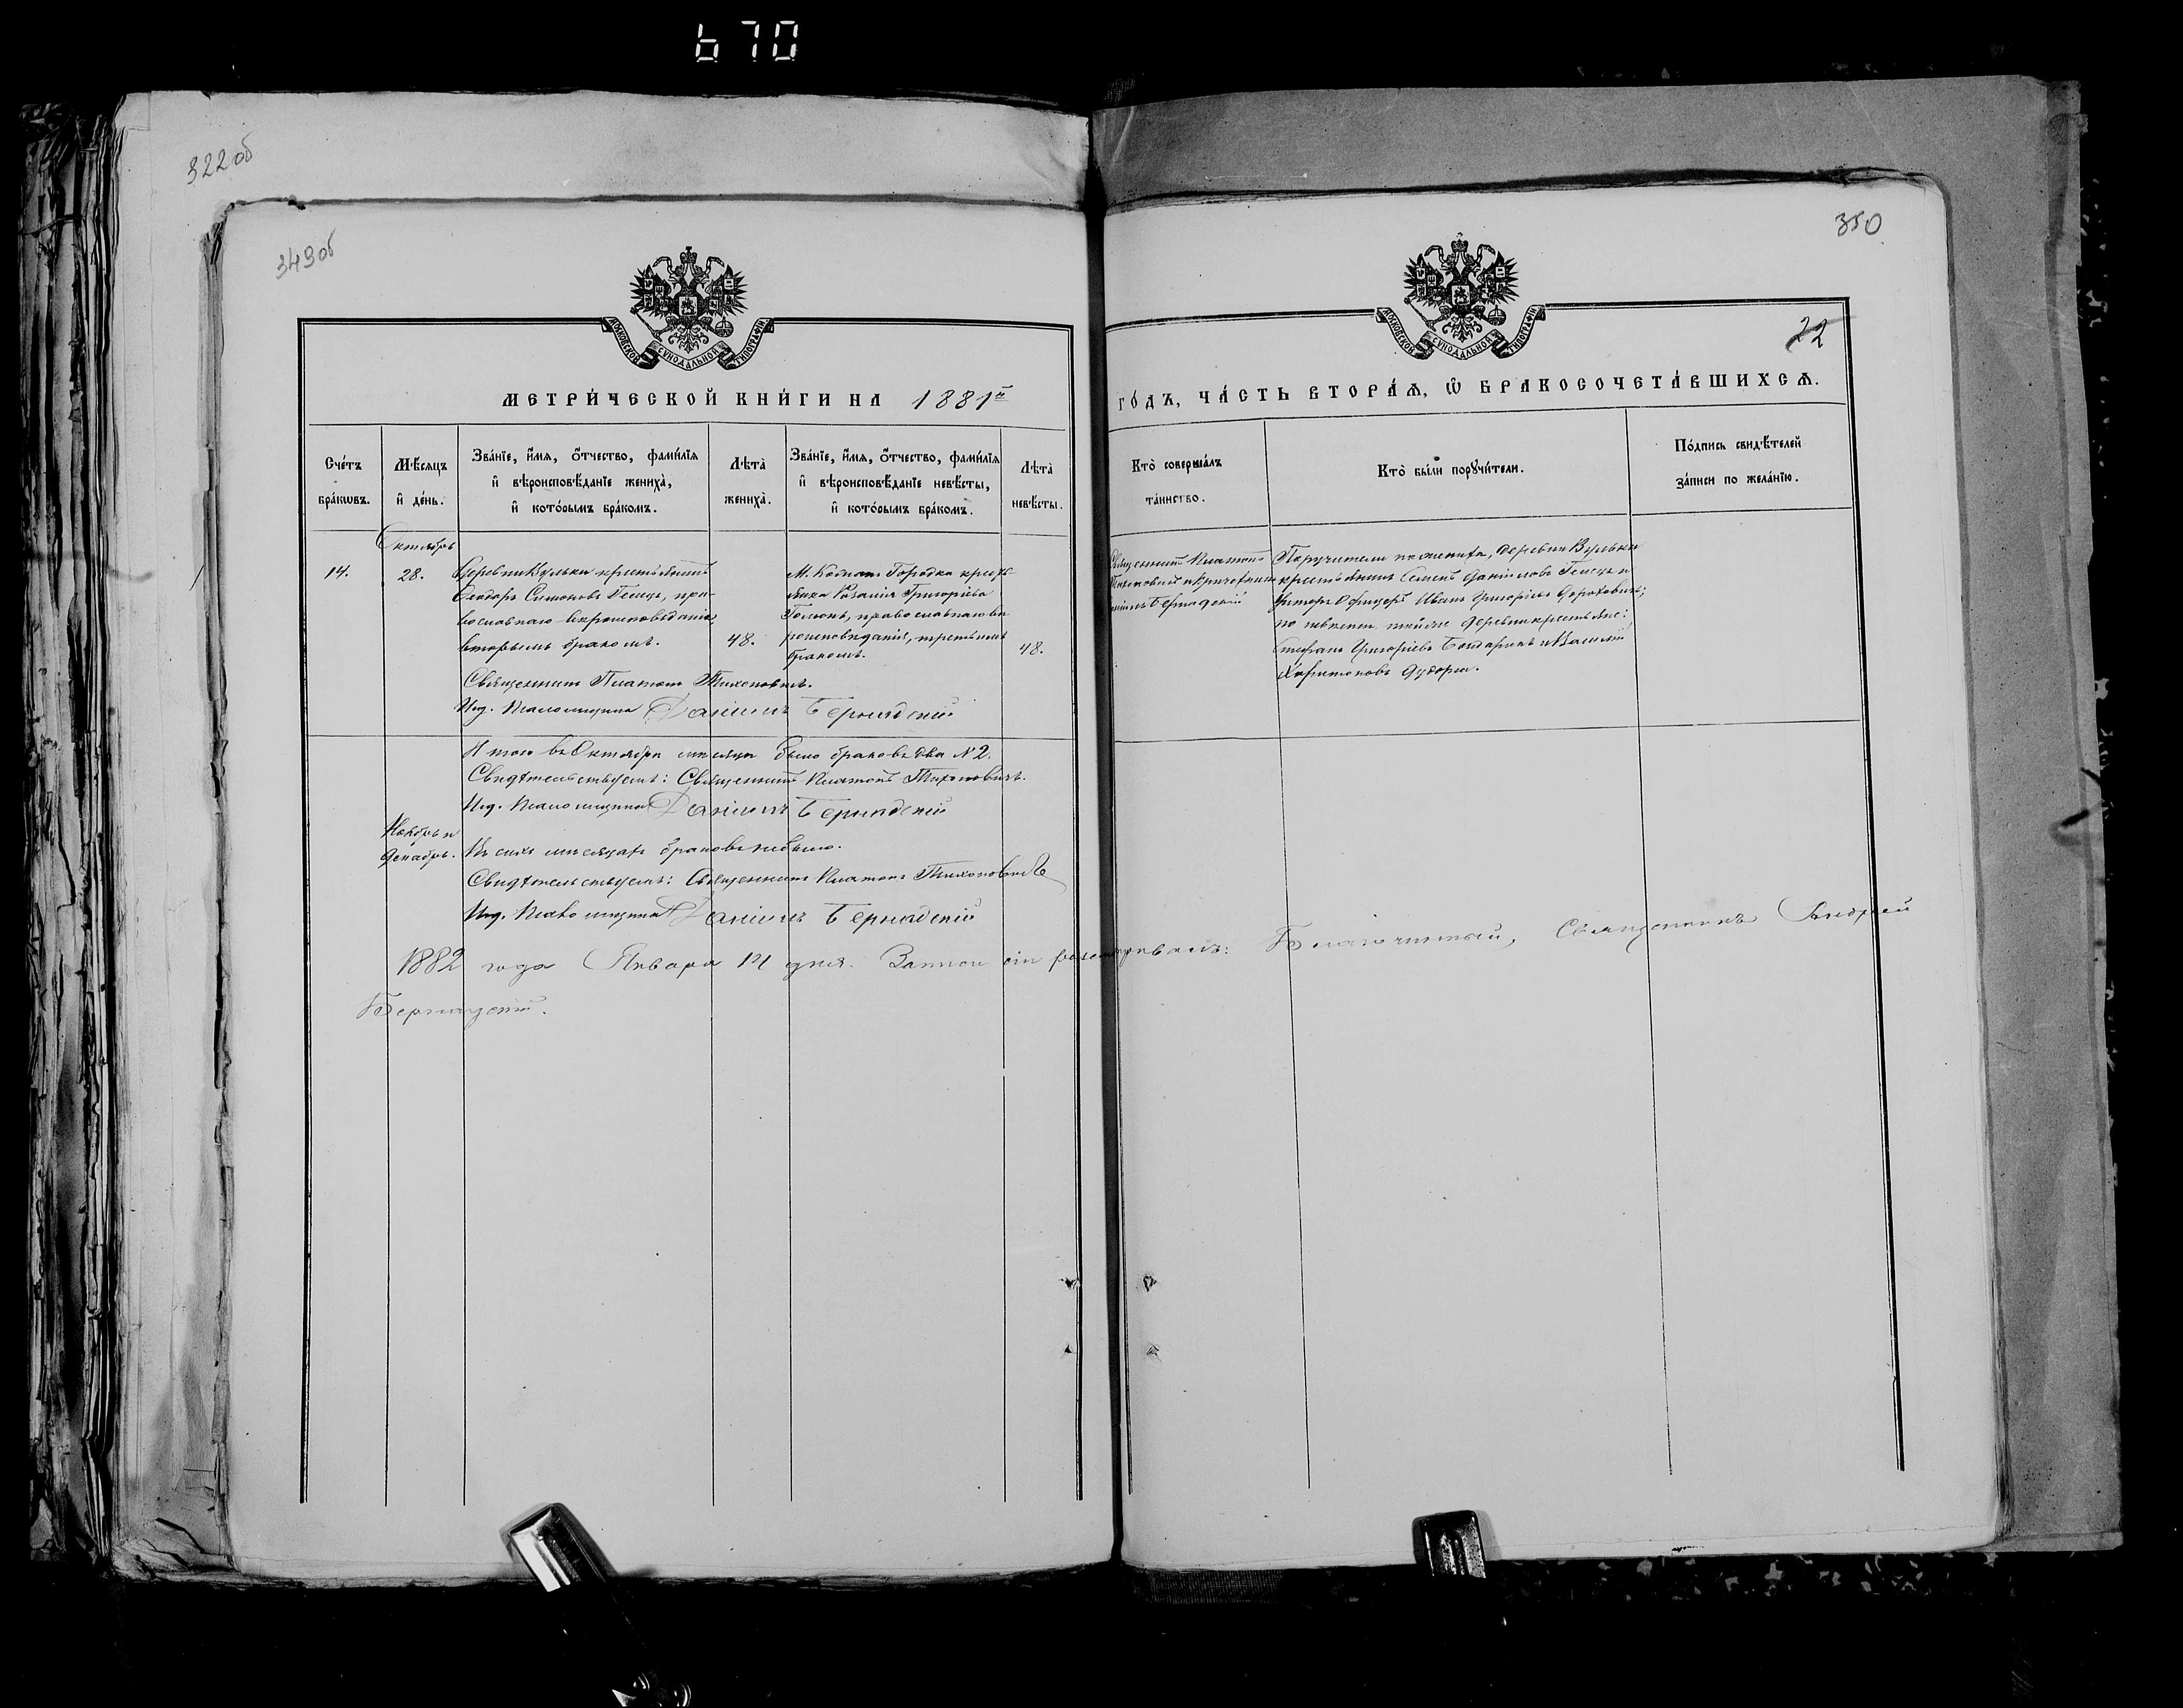 670
322 об
349 об
350
22
МОСКОВСКОЙ СѴНОДАЛЬНОЙ ТИПОГРАФІИ
МОСКОВСКОЙ СѴНОДАЛЬНОЙ ТИПОГРАФІИ
МЕТРИ́ЧЕСКОЙ КНИ́ГИ НА 1881й
ГО́ДЪ, ЧА́СТЬ ВТОРА́Ѧ, Ѽ БРАКОСОЧЕТА́ВШИХСѦ.
Сче́тъ
бра́кωвъ.
Мѣ́сяцъ
и҆ де́нь.
Зва́нїе, и҆́мя, ѻ҆́тчество, фами́лїя
и҆ вѣроисповѣ́данїе жениха̀,
и҆ кото́рымъ бра́комъ.
Лѣта̀
жениха̀.
Зва́нїе, и҆́мя, ѻ҆́тчество, фами́лїя
и҆ вѣроисповѣ́данїе невѣ́сты,
и҆ кото́рымъ бра́комъ.
Лѣта̀
невѣ́сты.
Кто̀ соверша́лъ
та́инство.
Кто̀ бы́ли порꙋчи́тели.
По́дпись свидѣ́телей
за́писи по жела́нїю.
Октябрь
14.
28.
Деревни Вульки крестьянинъ
Ѳеодоръ Симоновъ Гелець, пра-
вославнаго вѣроисповѣданія
вторымъ бракомъ.
48.
М. Городка кресть-
янка Розалія Григоріева
православнаго вѣ
роисповѣданія, третьимъ
бракомъ.
48.
Священникъ Платонъ
Тихоповичъ
Бернадскій
Поручители по женихѣ, деревни Вульки
крестьянинъ Семенъ Даніиловъ Гелець и
Унтеръ Офицеръ Иванъ Григоріевъ
по невѣстѣ той же деревни крестьяне:
Стефанъ Григоріевъ Бондарикъ и Василій
Харитоновъ
Священникъ Платонъ Тихоповичъ.
И. д. Псаломщика Даніилъ Бернадскій
Итого въ Октябрѣ мѣсяцѣ было браковъ два № 2.
Свидѣтельствуемъ: Священникъ Платонъ Тихоповичъ.
И. д. Псаломщика Даніилъ Бернадскій
Ноябрь и
Декабрь.
Въ сихъ мѣсяцахъ браковъ небыло.
Свидѣтельствуемъ: Священникъ Платонъ Тихоповичъ
И. д. Псаломщика Даніилъ Бернадскій
1882 года Января 14 дня. Записи сіи разсматривалъ: Благочинный, Священникъ Андрей
Бернадскій.